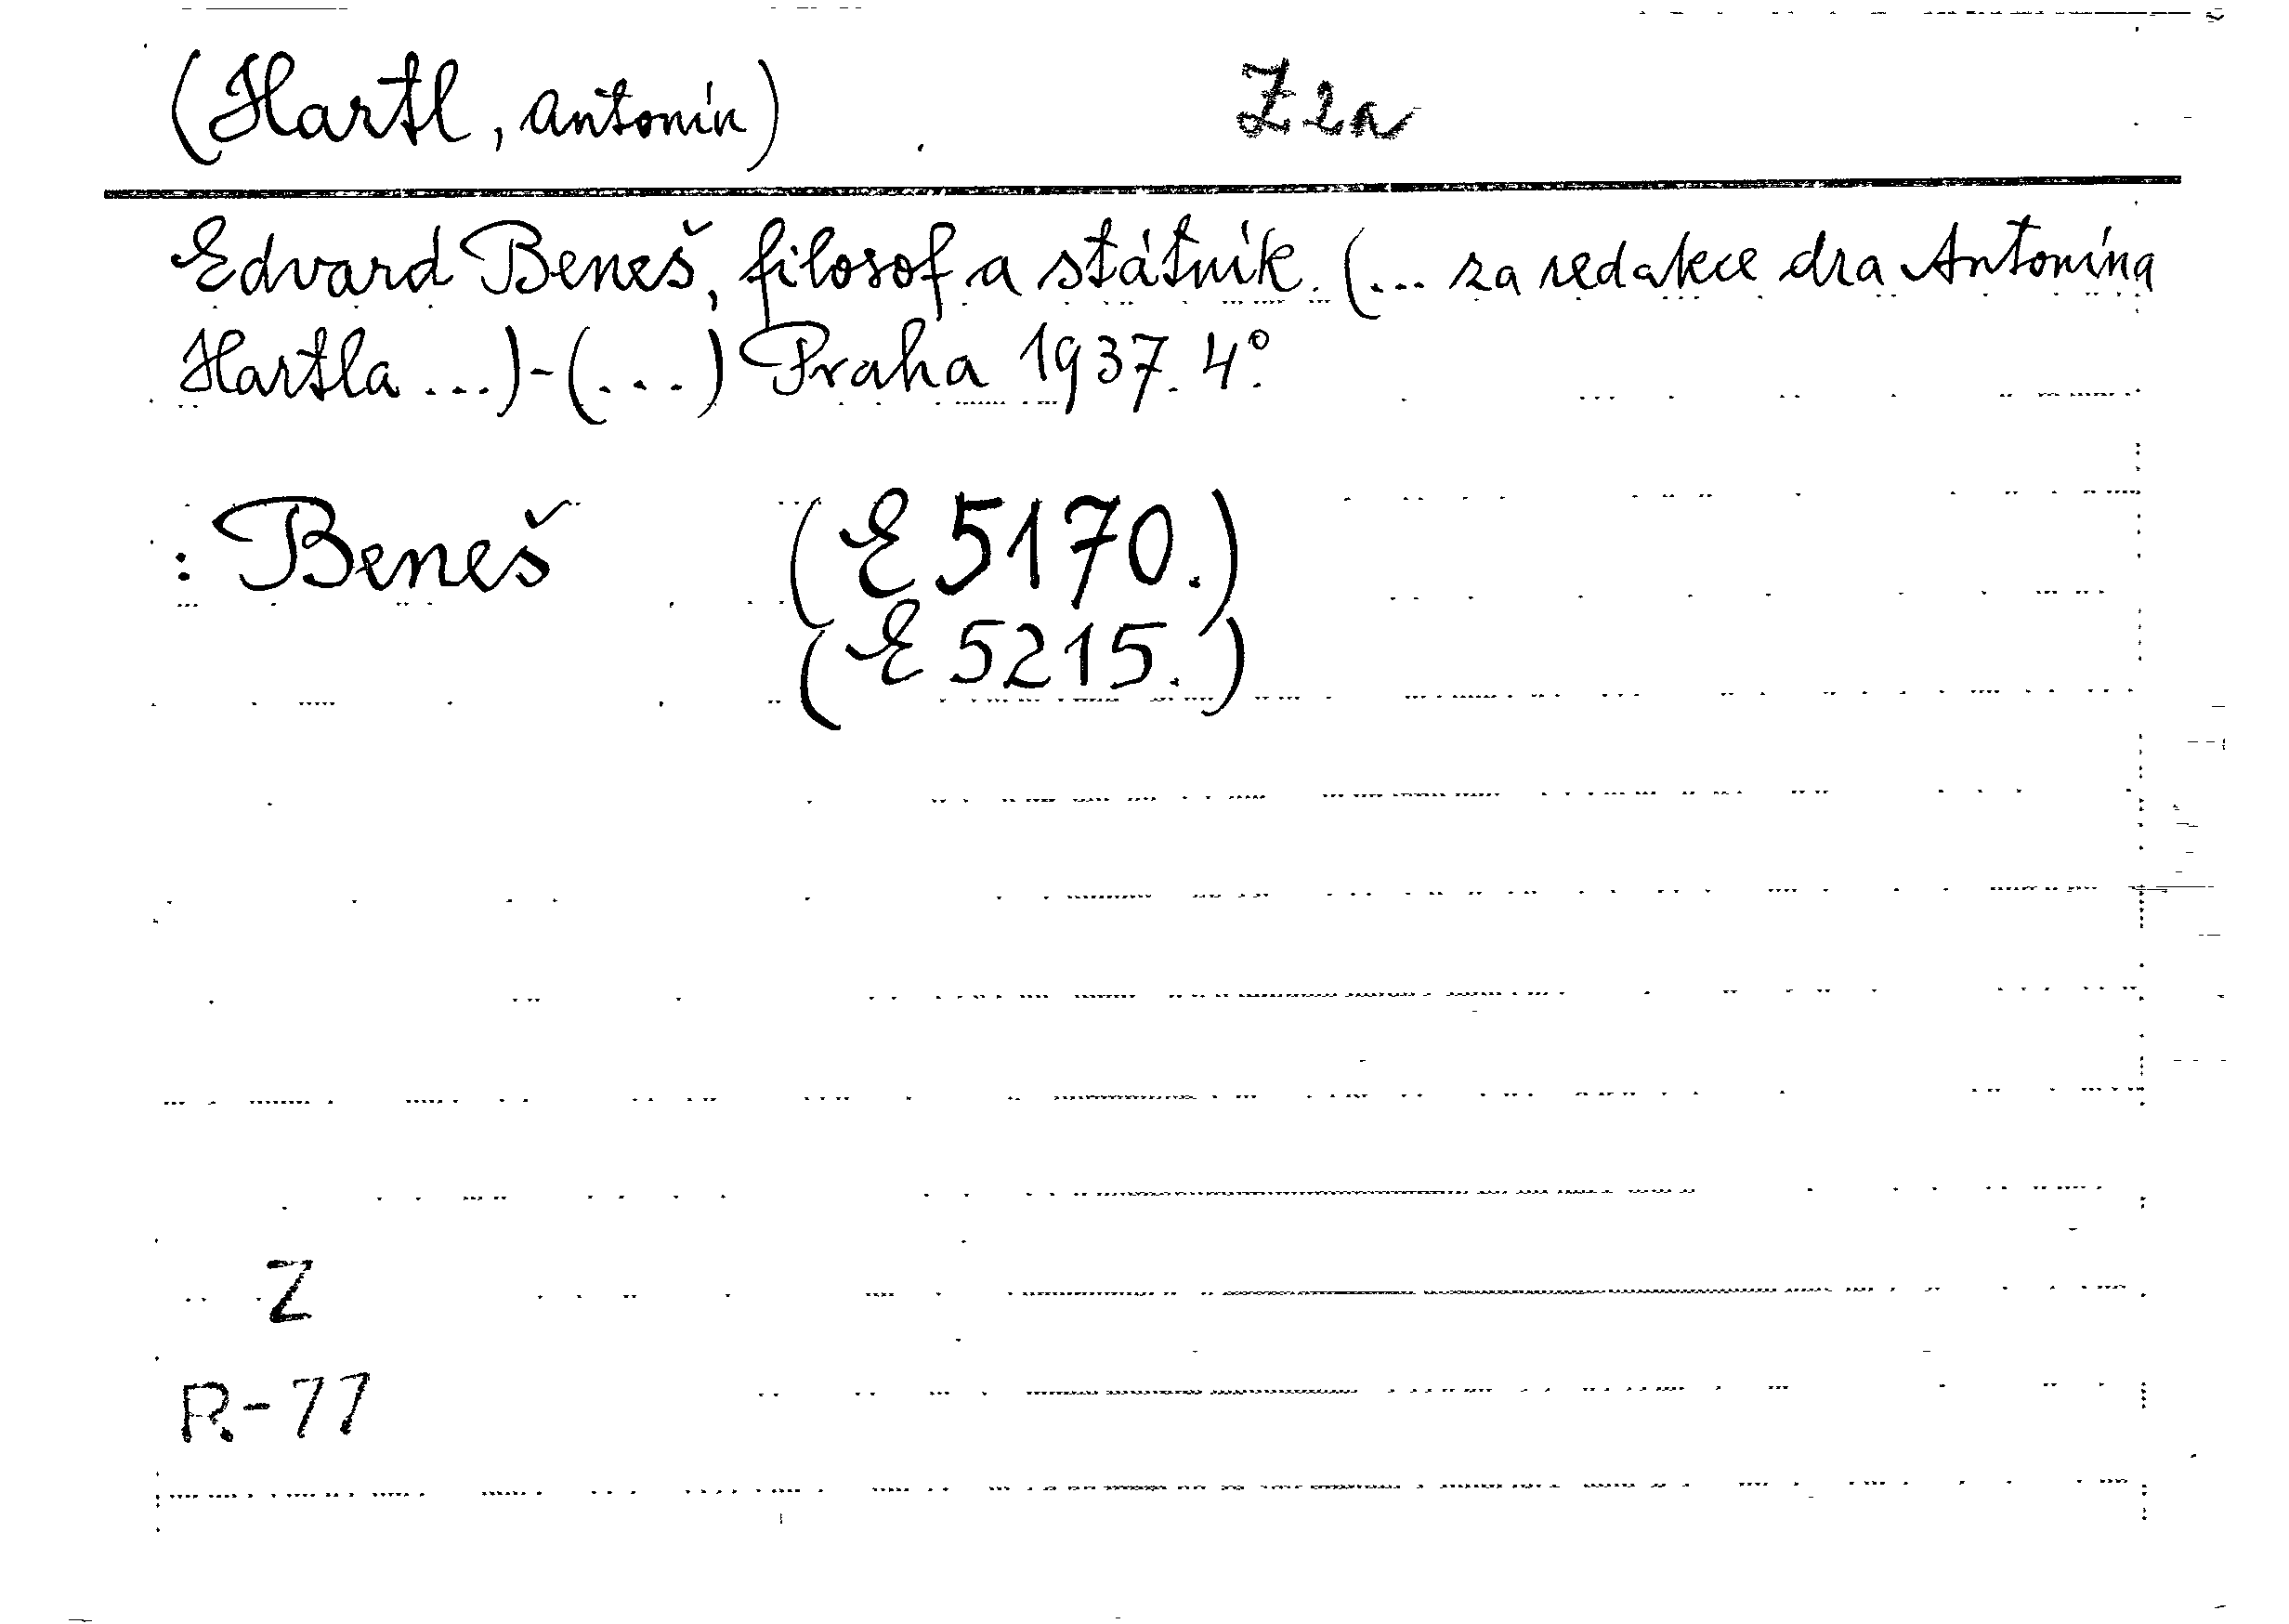 (Hartl, Antonín) Z2a
Edvard Beneš, filosof a státník. (... za redakce dra Antonína
Hartla ...) - (...) Praha 1937. 4°.
: Beneš (E 5170.)
(E 5215.)
Z
R-77